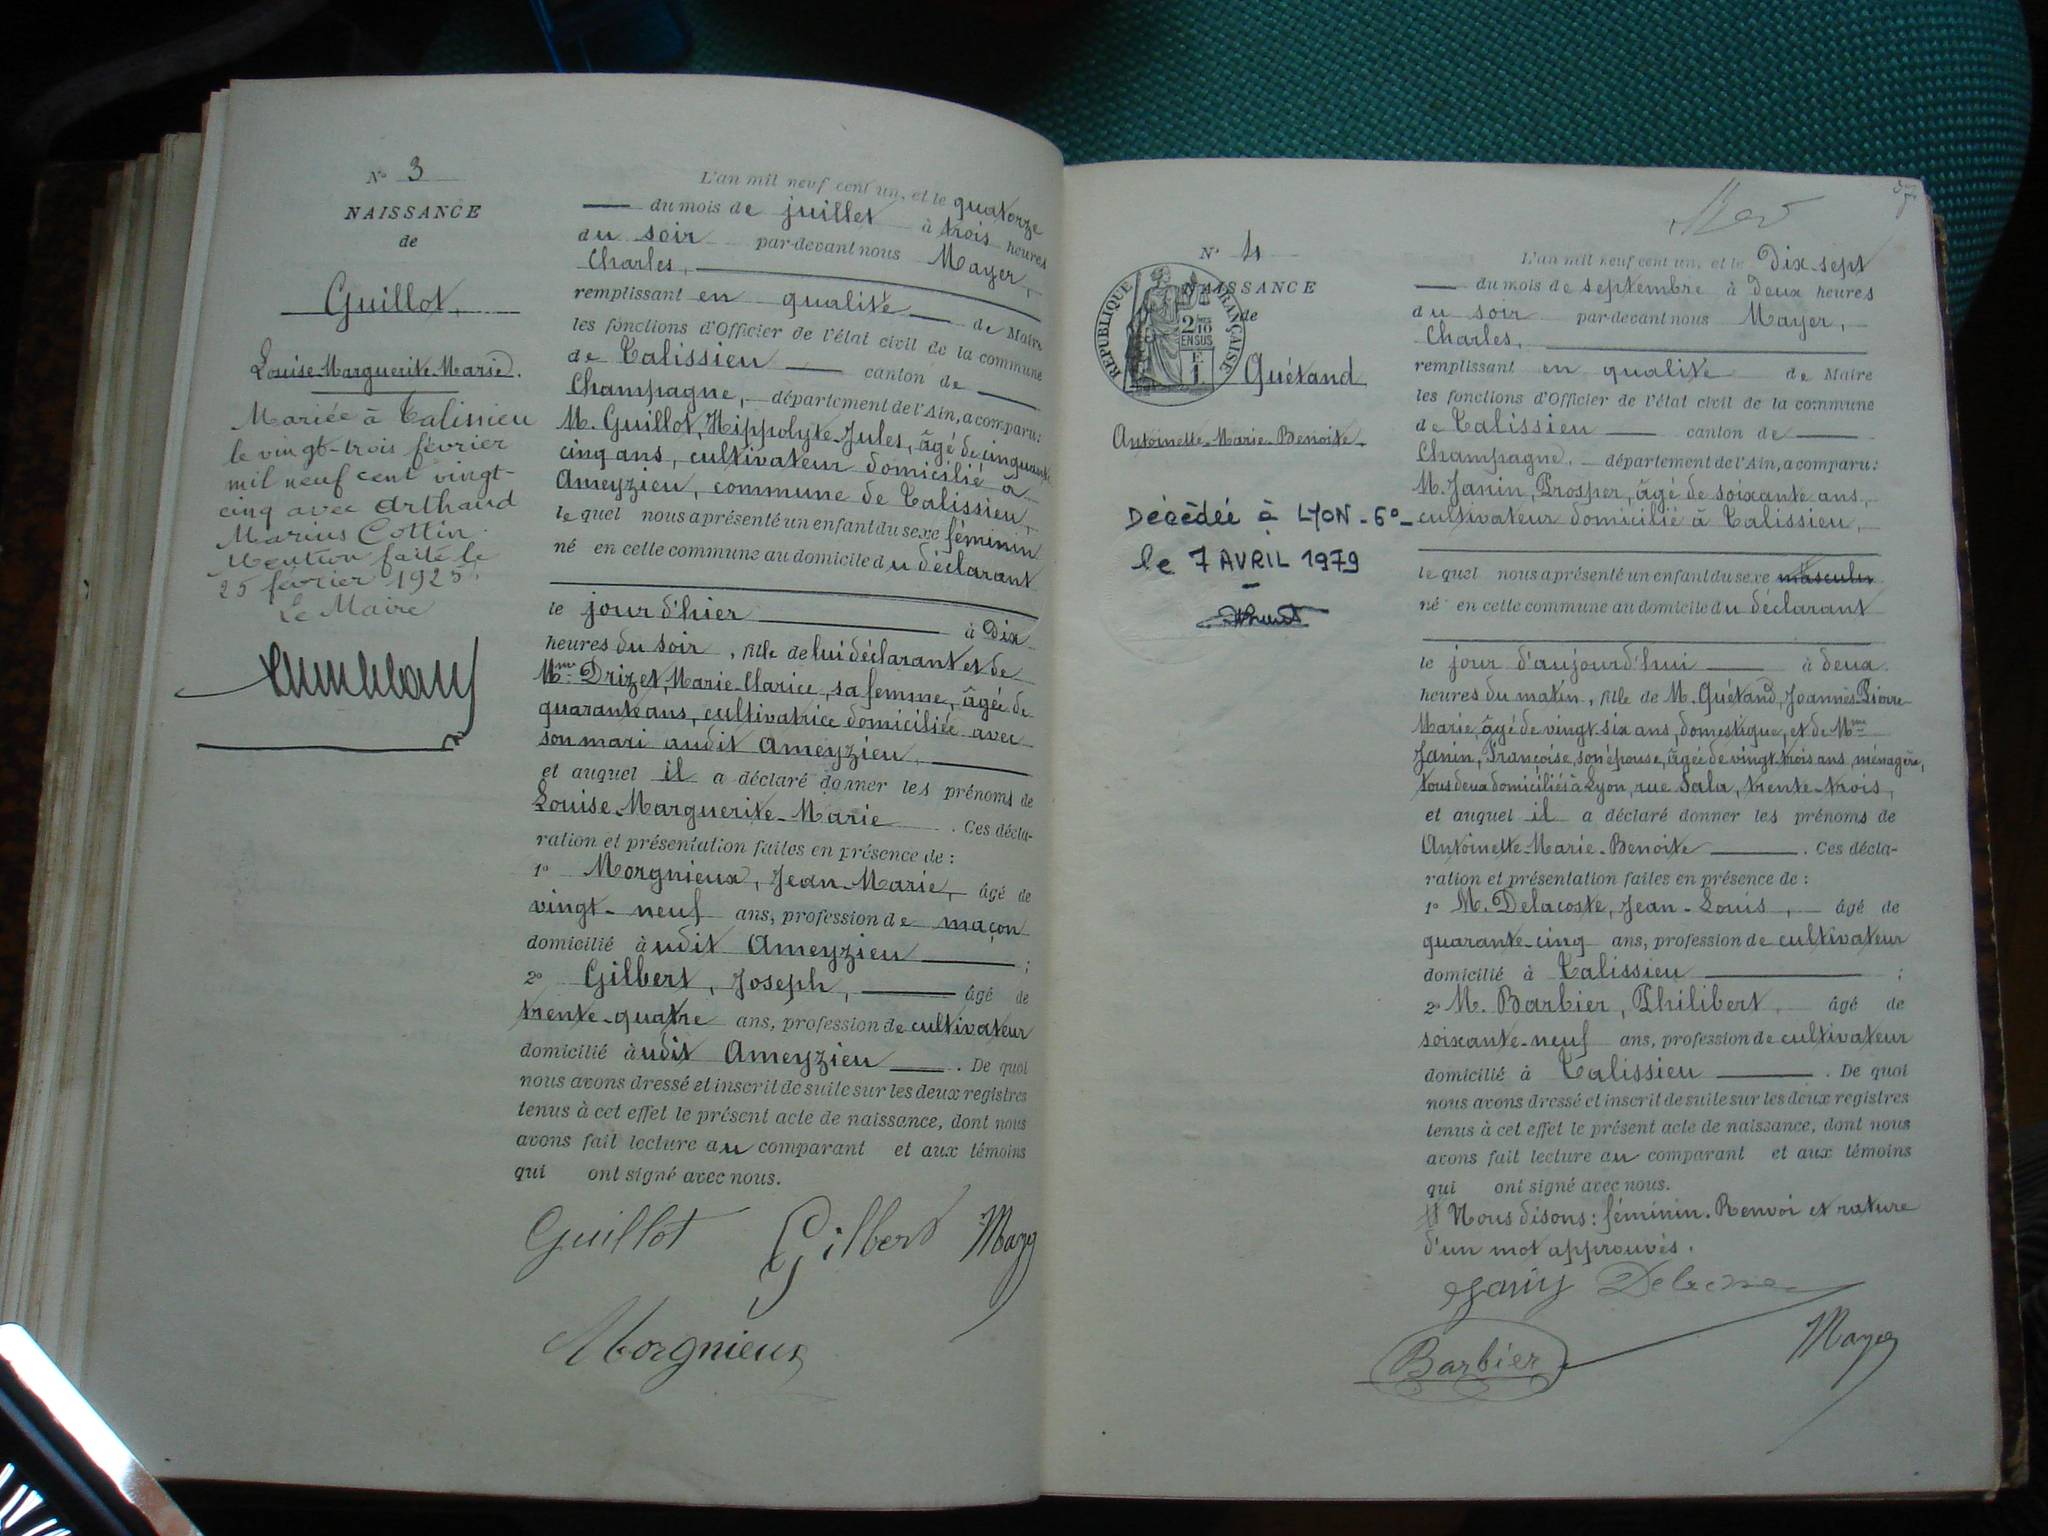 N° 3
NAISSANCE
de
Guillot,
Louise-Marguerite-Marie.
Mariée à Talissieu
le vingt-trois février
mil neuf cent vingt-
cinq avec Arthaud
Marius Cottin
Mention faite le
25 février 1925.
Le Maire
L'an mil neuf cent un, et le quatorze
du mois de juillet à trois heures
du soir par-devant nous Mayer,
Charles,
remplissant en qualité de Maire
les fonctions d'Officier de l'état civil de la commune
de Talissieu canton de
Champagne, département de l'Ain, a comparu:
M. Guillot, Hippolyte-Jules, âgé de cinquante
cinq ans, cultivateur domicilié à
Ameyzieu, commune de Talissieu,
lequel nous a présenté un enfant du sexe féminin
né en cette commune au domicile du déclarant
le jour d'hier à Dix
heures du soir, fille de lui déclarant et de
Mme Drizet, Marie-Clarice, sa femme, âgée de
quarante ans, cultivatrice domiciliée avec
son mari audit Ameyzieu,
et auquel il a déclaré donner les prénoms de
Louise-Marguerite-Marie. Ces décla-
ration et présentation faites en présence de :
1° Morgnieux, Jean-Marie, âgé de
vingt-neuf ans, profession de maçon
domicilié audit Ameyzieu ;
2° Gilbert, Joseph, âgé de
trente-quatre ans, profession de cultivateur
domicilié audit Ameyzieu. De quoi
nous avons dressé et inscrit de suite sur les deux registres
tenus à cet effet le présent acte de naissance, dont nous
avons fait lecture au comparant et aux témoins
qui ont signé avec nous.
Guillot Gilbert Mayer
Morgnieux
N° 4
NAISSANCE
de
RÉPUBLIQUE FRANÇAISE
2/10
EN SUS
Guétand
Antoinette-Marie-Benoite
Décédée à LYON-6°
le 7 AVRIL 1979
L'an mil neuf cent un, et le Dix-sept
du mois de septembre à Deux heures
du soir par-devant nous Mayer,
Charles,
remplissant en qualité de Maire
les fonctions d'Officier de l'état civil de la commune
de Talissieu canton de
Champagne, département de l'Ain, a comparu:
M. Janin, Prosper, âgé de soixante ans,
cultivateur domicilié à Talissieu,
lequel nous a présenté un enfant du sexe masculin
né en cette commune au domicile du déclarant
le jour d'aujourd'hui à deux
heures du matin, fille de M. Guétand, Joannès-Pierre-
Marie, âgé de vingt six ans, domestique, et de Mme
Janin, Françoise, son épouse, âgée de vingt-trois ans, ménagère,
tous deux domiciliés à Lyon, rue Sala, trente-trois,
et auquel il a déclaré donner les prénoms de
Antoinette-Marie-Benoite. Ces décla-
ration et présentation faites en présence de :
1° M. Delacoste, Jean-Louis, âgé de
quarante-cinq ans, profession de cultivateur
domicilié à Talissieu ;
2° M. Barbier, Philibert, âgé de
soixante-neuf ans, profession de cultivateur
domicilié à Talissieu. De quoi
nous avons dressé et inscrit de suite sur les deux registres
tenus à cet effet le présent acte de naissance, dont nous
avons fait lecture au comparant et aux témoins
qui ont signé avec nous.
# Nous disons : féminin. Renvoi et rature
d'un mot approuvés.
Janin Delacoste
Barbier Mayer